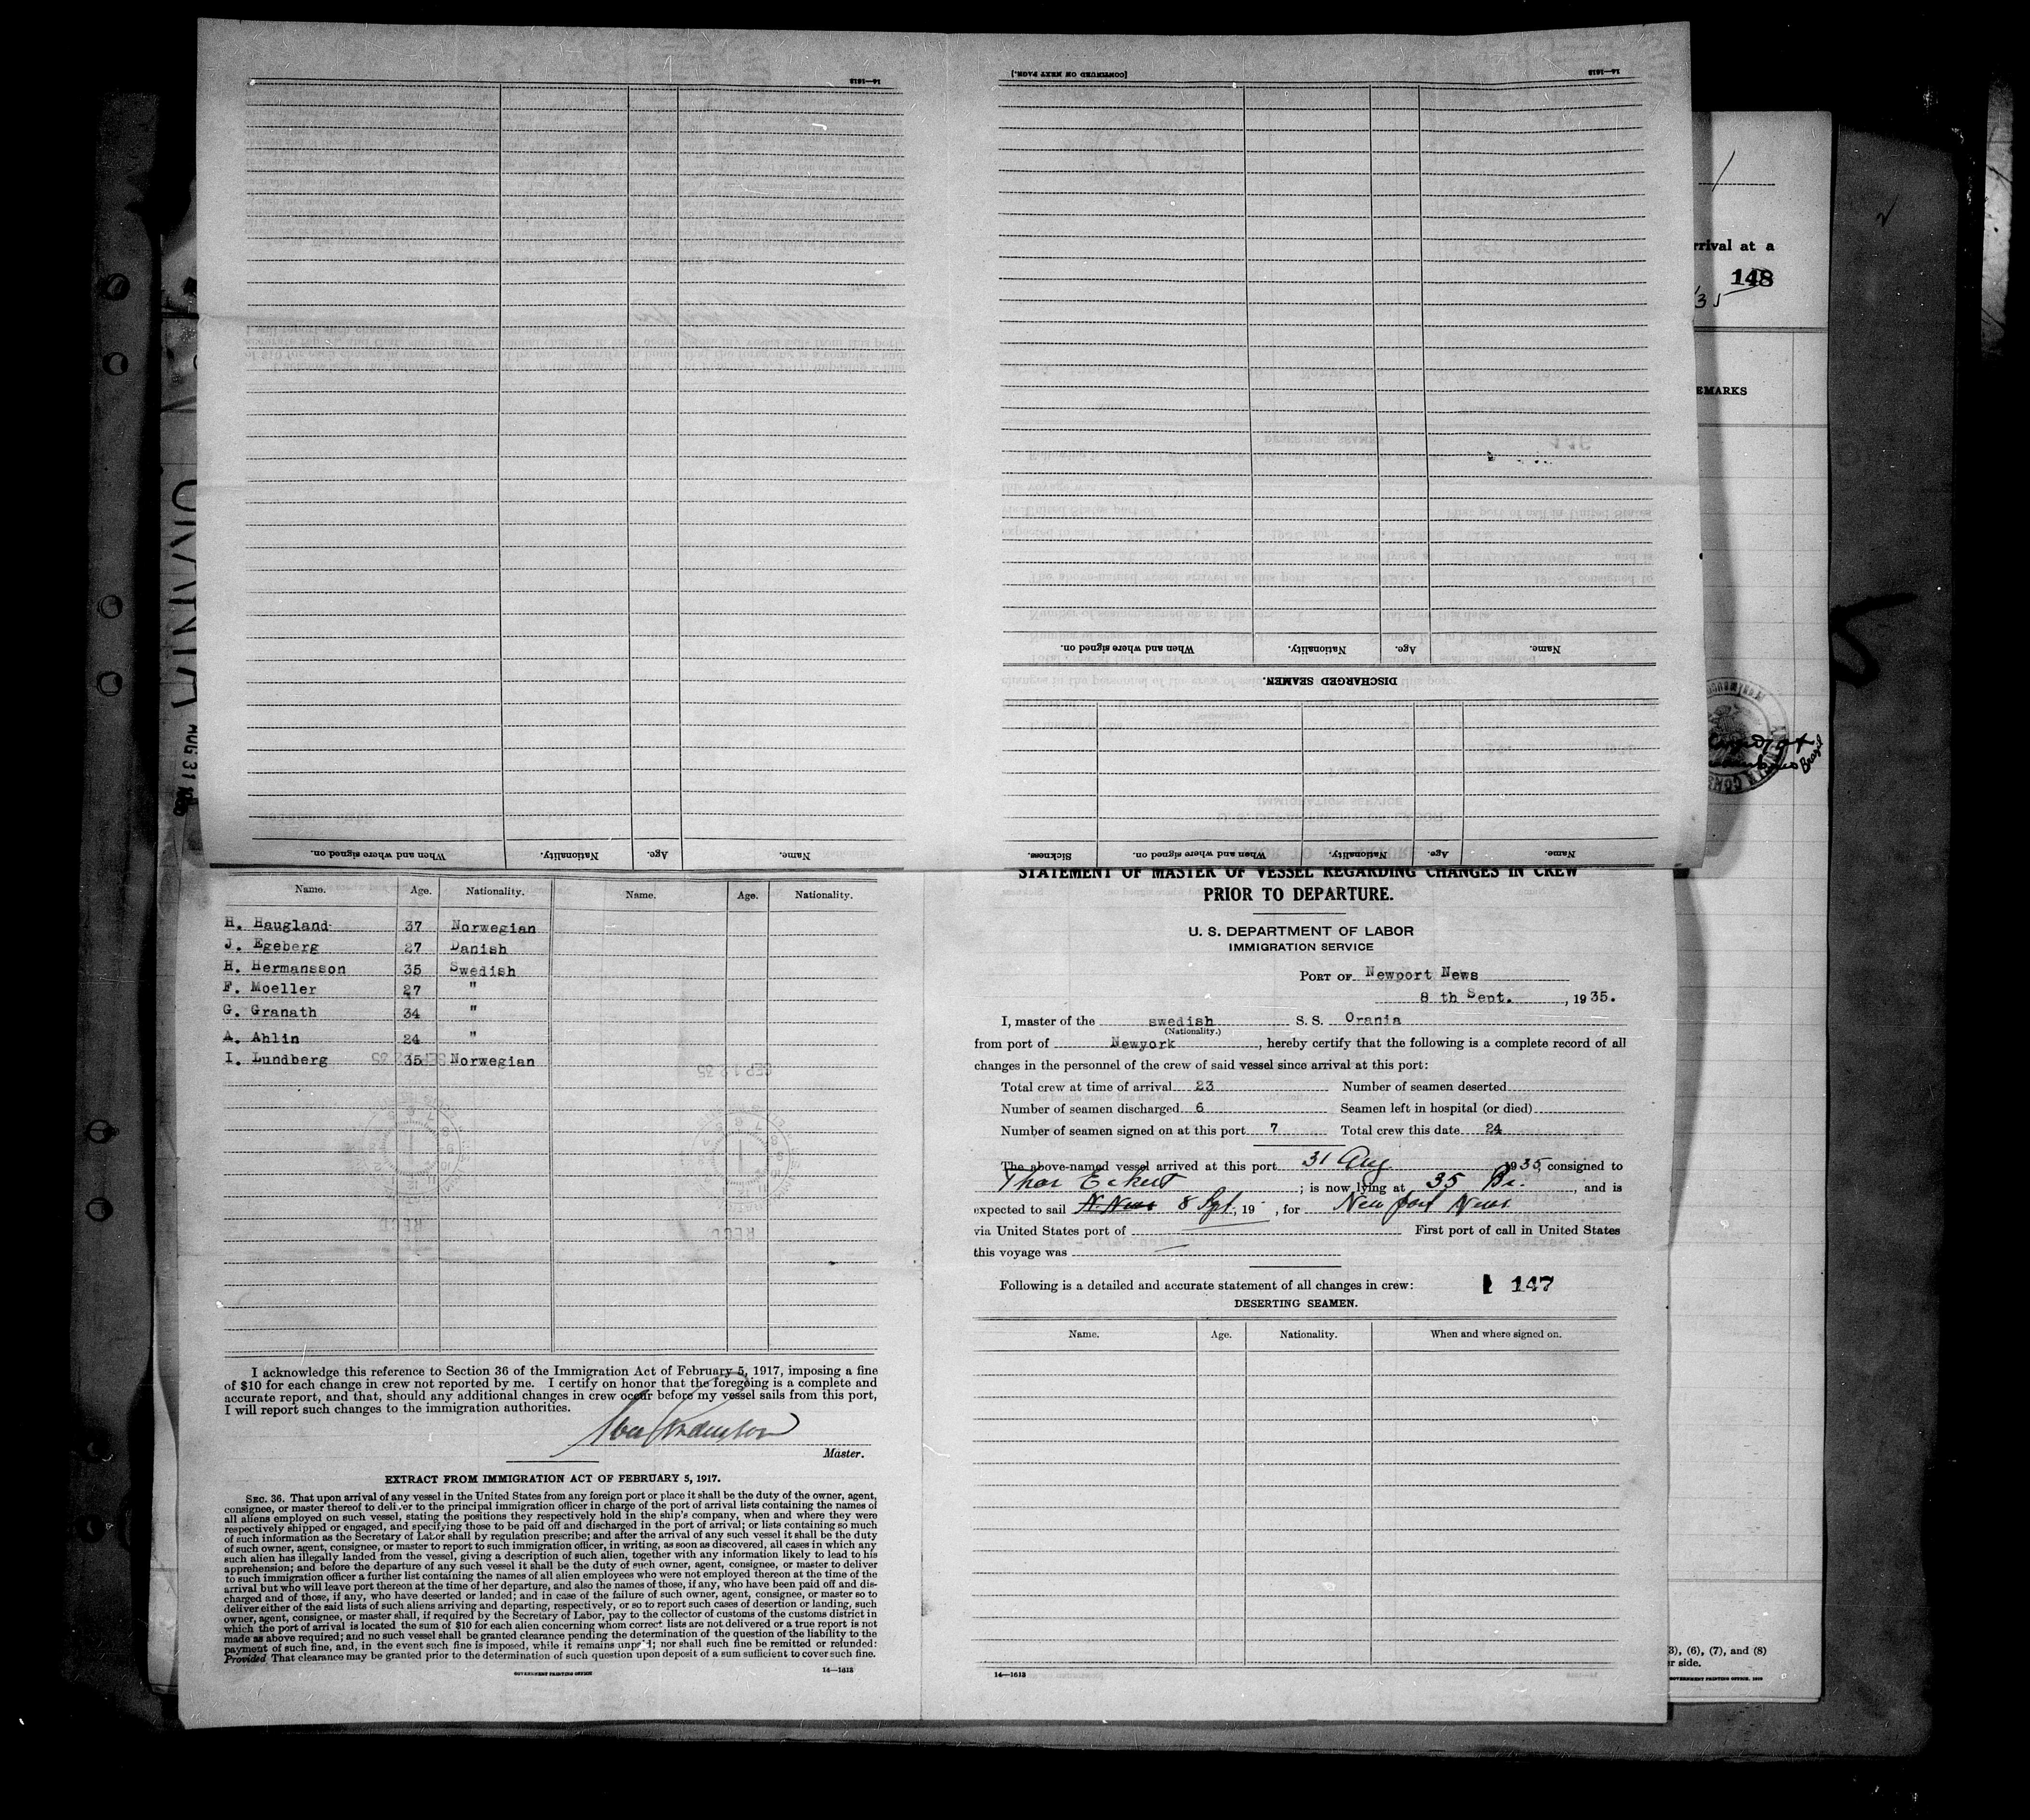 14—1613
[CONTINUED ON NEXT PAGE.]
14—1613
rrival at a
148
EMARKS
ORANIA
AUG 31
Name. Age. Nationality. When and where signed on.
DISCHARGED SEAMEN.
Name. Age. Nationality. When and where signed on. Sickness.
Name. Age. Nationality. When and where signed on.
Name. Age. Nationality. Name. Age. Nationality.
H. Haugland 37 Norwegian
J. Egeberg 27 Danish
H. Hermansson 35 Swedish
F. Moeller 27 "
G. Granath 34 "
A. Ahlin 24 "
I. Lundberg 35 Norwegian
SEP 12 35
REC'D
I acknowledge this reference to Section 36 of the Immigration Act of February 5, 1917, imposing a fine
of $10 for each change in crew not reported by me. I certify on honor that the foregoing is a complete and
accurate report, and that, should any additional changes in crew occur before my vessel sails from this port,
I will report such changes to the immigration authorities.
Master.
EXTRACT FROM IMMIGRATION ACT OF FEBRUARY 5, 1917.
SEC. 36. That upon arrival of any vessel in the United States from any foreign port or place it shall be the duty of the owner, agent,
consignee, or master thereof to deliver to the principal immigration officer in charge of the port of arrival lists containing the names of
all aliens employed on such vessel, stating the positions they respectively hold in the ship's company, when and where they were
respectively shipped or engaged, and specifying those to be paid off and discharged in the port of arrival; or lists containing so much
of such information as the Secretary of Labor shall by regulation prescribe; and after the arrival of any such vessel it shall be the duty
of such owner, agent, consignee, or master to report to such immigration officer, in writing, as soon as discovered, all cases in which any
such alien has illegally landed from the vessel, giving a description of such alien, together with any information likely to lead to his
apprehension; and before the departure of any such vessel it shall be the duty of such owner, agent, consignee, or master to deliver
to such immigration officer a further list containing the names of all alien employees who were not employed thereon at the time of the
arrival but who will leave port thereon at the time of her departure, and also the names of those, if any, who have been paid off and dis-
charged and of those, if any, who have deserted or landed; and in case of the failure of such owner, agent, consignee, or master so to
deliver either of the said lists of such aliens arriving and departing, respectively, or so to report such cases of desertion or landing, such
owner, agent, consignee, or master shall, if required by the Secretary of Labor, pay to the collector of customs of the customs district in
which the port of arrival is located the sum of $10 for each alien concerning whom correct lists are not delivered or a true report is not
made as above required; and no such vessel shall be granted clearance pending the determination of the question of the liability to the
payment of such fine, and, in the event such fine is imposed, while it remains unpaid; nor shall such fine be remitted or refunded:
Provided That clearance may be granted prior to the determination of such question upon deposit of a sum sufficient to cover such fine.
GOVERNMENT PRINTING OFFICE 14—1613
STATEMENT OF MASTER OF VESSEL REGARDING CHANGES IN CREW
PRIOR TO DEPARTURE.
U. S. DEPARTMENT OF LABOR
IMMIGRATION SERVICE
PORT OF Newport News
8 th Sept. , 1935.
I, master of the swedish S. S. Orania
(Nationality.)
from port of Newyork , hereby certify that the following is a complete record of all
changes in the personnel of the crew of said vessel since arrival at this port:
Total crew at time of arrival 23 Number of seamen deserted
Number of seamen discharged 6 Seamen left in hospital (or died)
Number of seamen signed on at this port 7 Total crew this date 24
The above-named vessel arrived at this port 31 Aug 1935, consigned to
Thor Eckert ; is now lying at 35 Br. , and is
expected to sail N. News 8 Sept, 19 , for Newport News
via United States port of First port of call in United States
this voyage was
Following is a detailed and accurate statement of all changes in crew: 147
DESERTING SEAMEN.
Name. Age. Nationality. When and where signed on.
14—1613
3), (6), (7), and (8)
r side.
GOVERNMENT PRINTING OFFICE